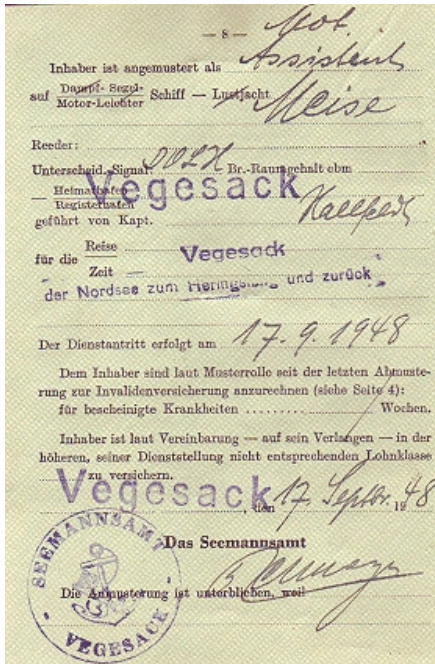 — 8 —
Mot.
Inhaber ist angemustert als Assistent
auf Dampf- Segel- Motor-Leichter Schiff — Lustjacht Meise
Reeder:
Unterscheid. Signal: DOLH Br.-Raumgehalt cbm
— Heimathafen Registerhafen Vegesack
geführt von Kapt.
für die Reise Zeit — Vegesack
der Nordsee zum Heringsfang und zurück
Der Dienstantritt erfolgt am 17.9.1948
Dem Inhaber sind laut Musterrolle seit der letzten Abmuste-
rung zur Invalidenversicherung anzurechnen (siehe Seite 4):
für bescheinigte Krankheiten ......... Wochen.
Inhaber ist laut Vereinbarung — auf sein Verlangen — in der
höheren, seiner Dienststellung nicht entsprechenden Lohnklasse
zu versichern.
Vegesack, den 17. Septbr. 1948
Das Seemannsamt
Die Anmusterung ist unterblieben, weil
SEEMANNSAMT
VEGESACK